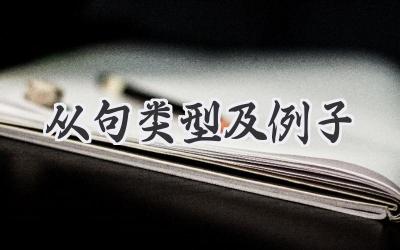 从句类型及例子